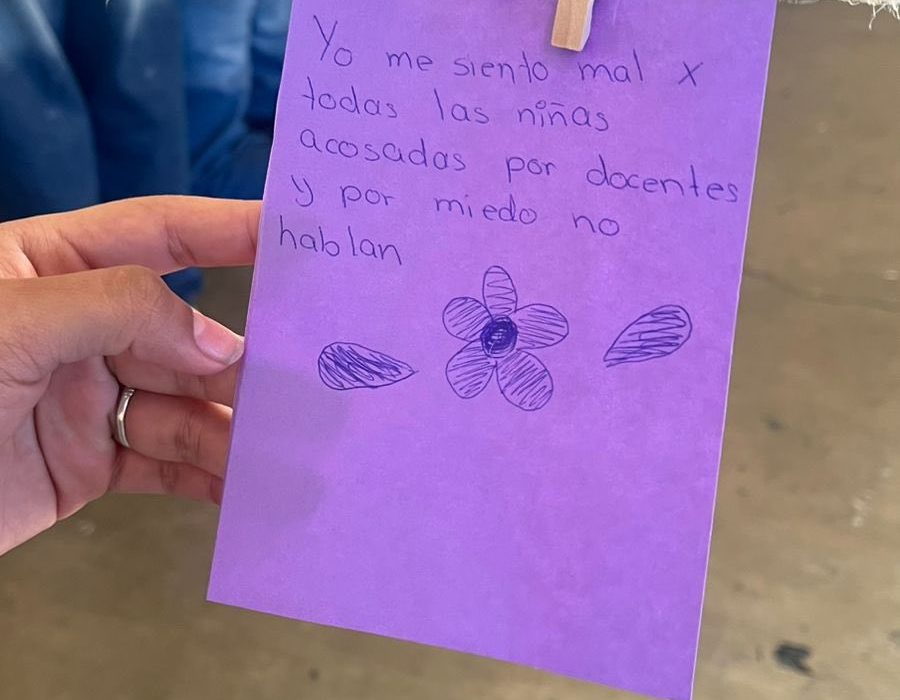 Yo me siento mal x
todas las niñas
acosadas por docentes
y por miedo no
hablan